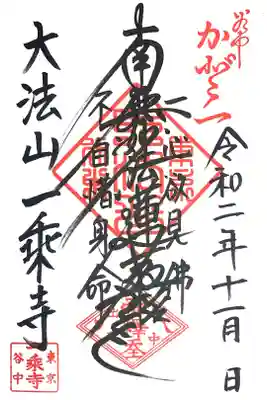 谷中
令和二年十一月 日
一心欲見佛
南無妙法蓮華経
不自惜身命
大法山一乗寺
東京
一乗寺
谷中